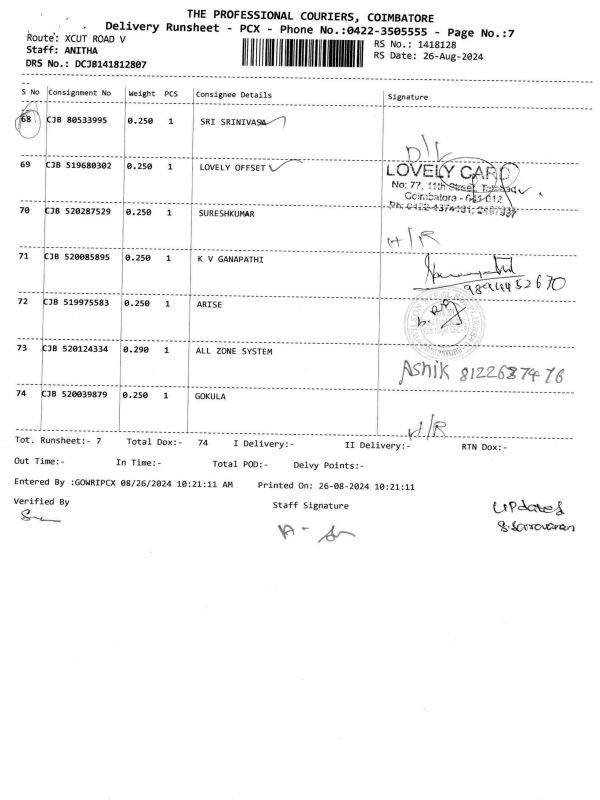 THE PROFESSIONAL COURIERS, COIMBATORE
Delivery Runsheet - PCX - Phone No.:0422-3505555 - Page No.:7
Route: XCUT ROAD V
RS No.: 1418128
Staff: ANITHA
RS Date: 26-Aug-2024
DRS No.: DCJB141812807
S No Consignment No Weight PCS Consignee Details Signature
68 CJB 80533995 0.250 1 SRI SRINIVASA
D/L
69 CJB 519680302 0.250 1 LOVELY OFFSET
LOVELY CARD
No: 77, 11th Street,
Coimbatore - 641 012
70 CJB 520287529 0.250 1 SURESHKUMAR
H/R
71 CJB 520085895 0.250 1 K V GANAPATHI
72 CJB 519975583 0.250 1 ARISE
73 CJB 520124334 0.290 1 ALL ZONE SYSTEM
Ashik 8122687476
74 CJB 520039879 0.250 1 GOKULA
H/R
Tot. Runsheet:- 7 Total Dox:- 74 I Delivery:- II Delivery:- RTN Dox:-
Out Time:- In Time:- Total POD:- Delvy Points:-
Entered By :GOWRIPCX 08/26/2024 10:21:11 AM Printed On: 26-08-2024 10:21:11
Verified By Staff Signature
Updated
S.Saravanan